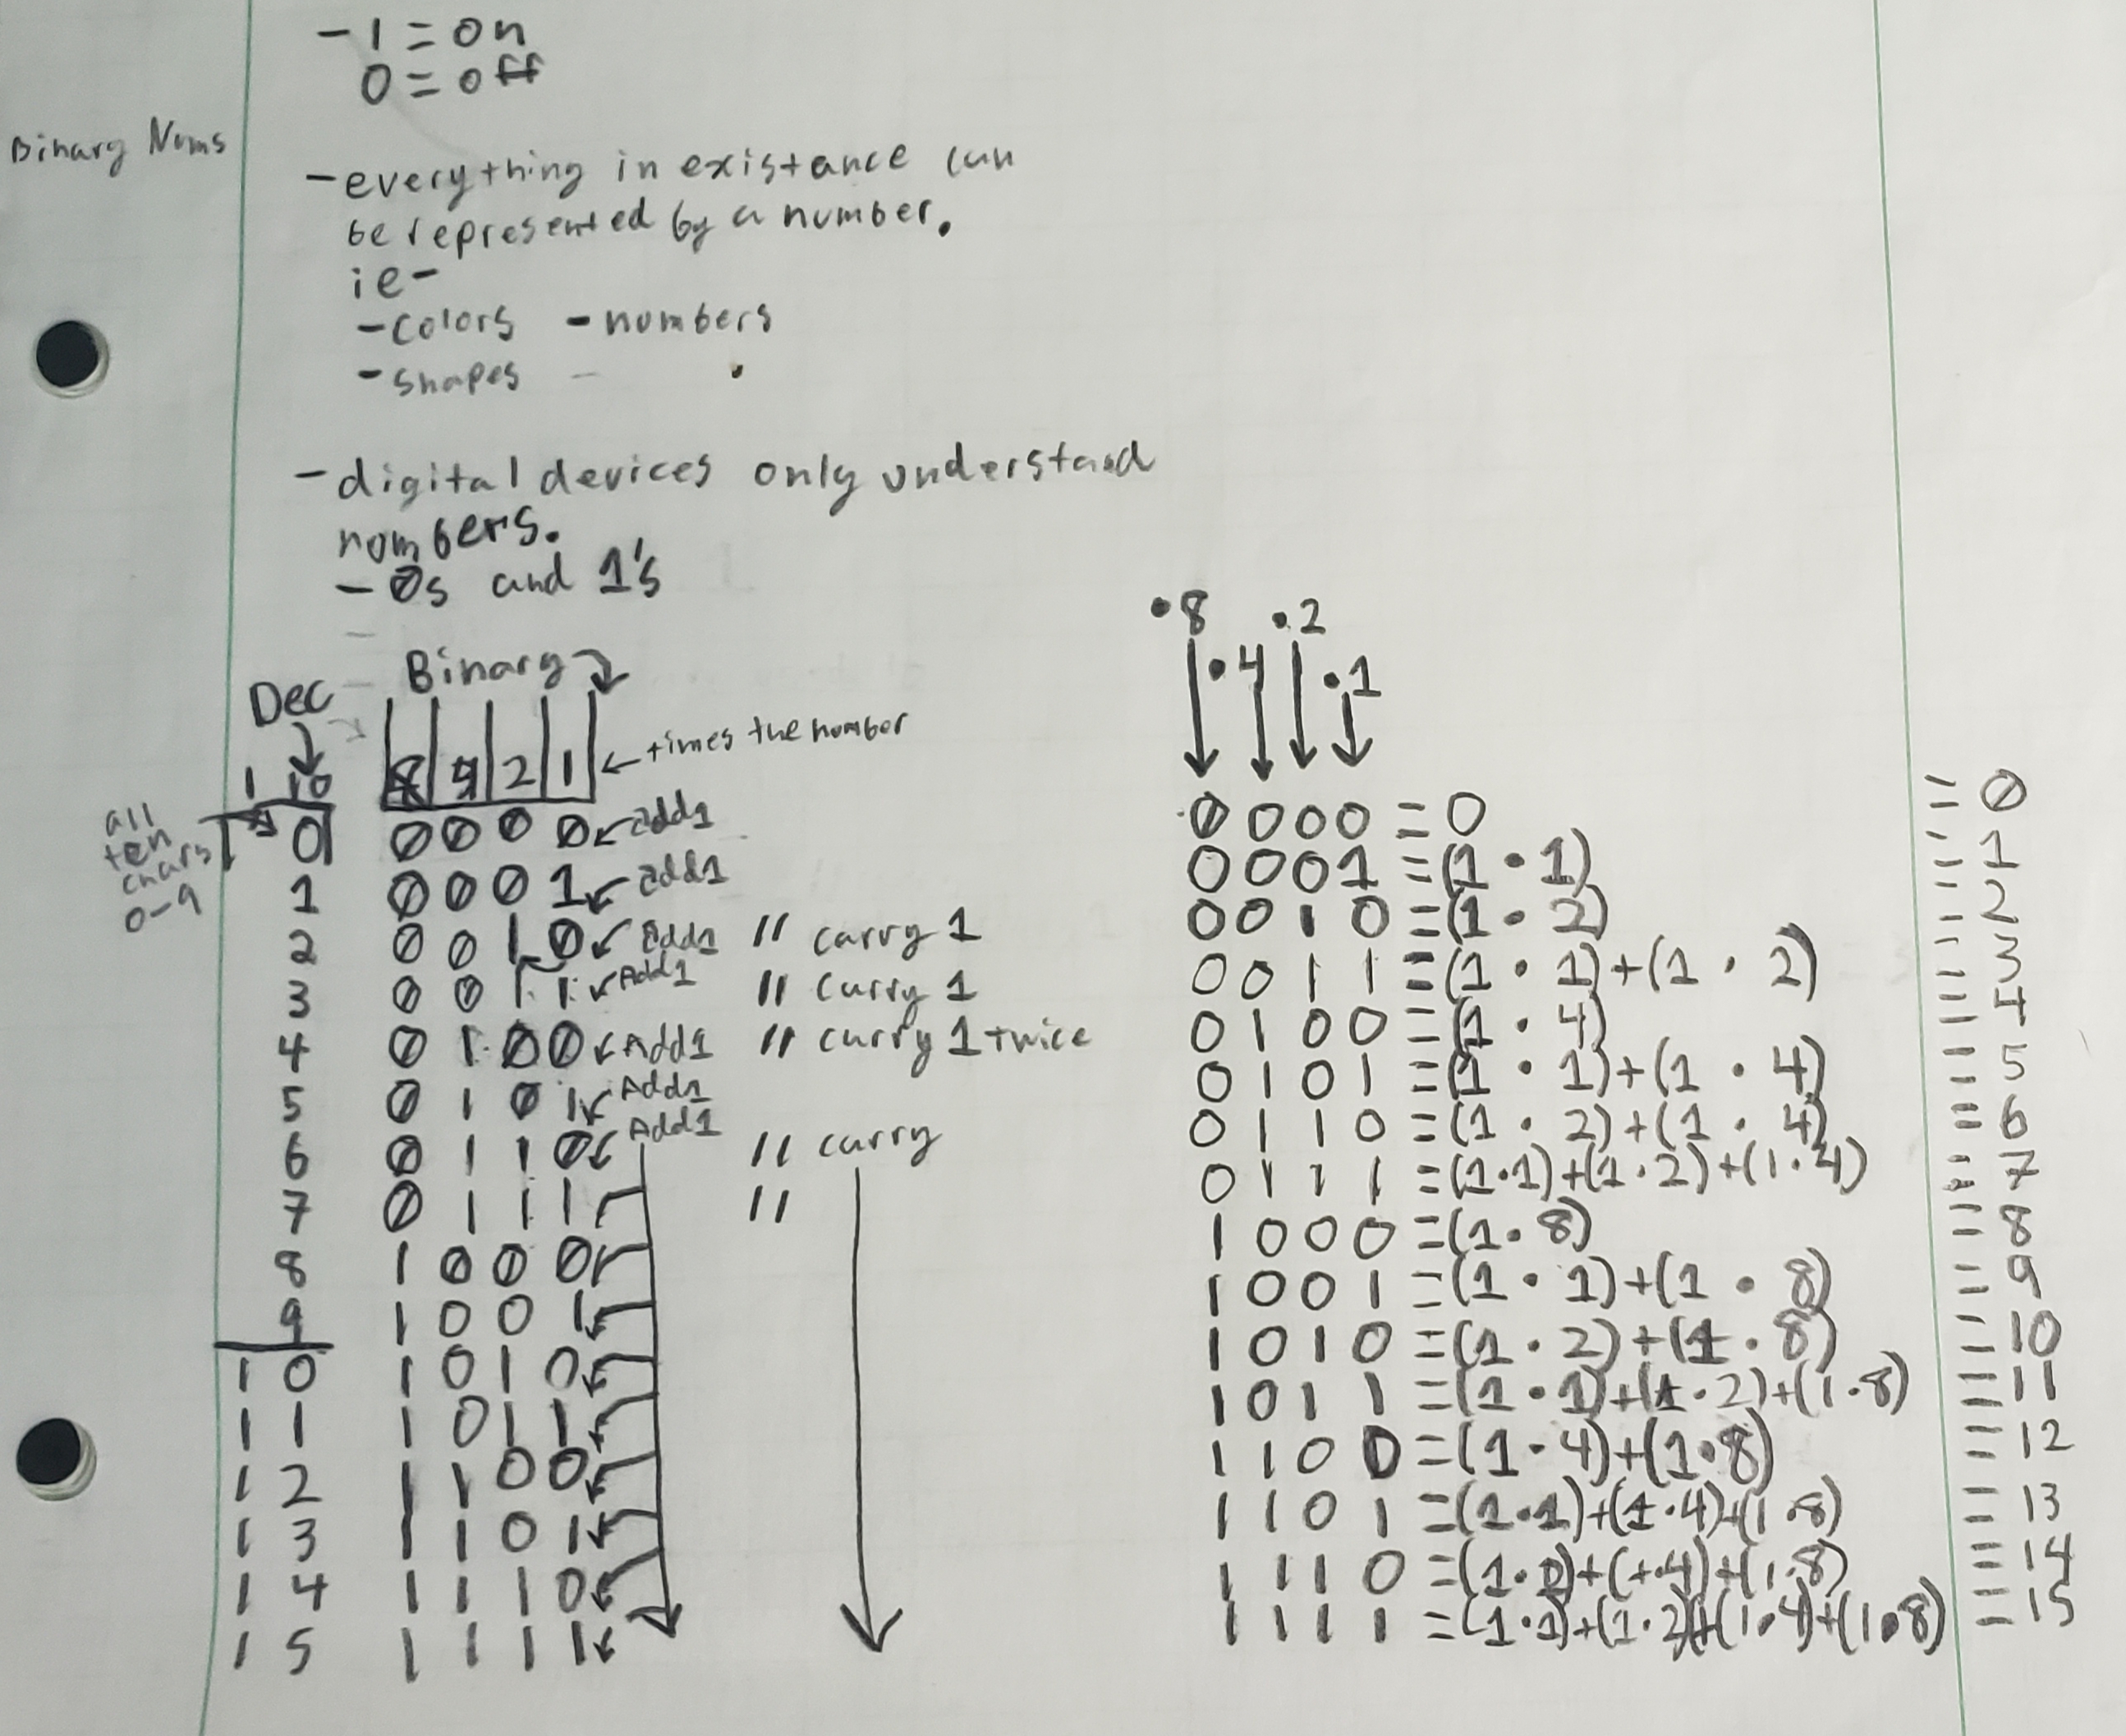 - 1 = on
0 = off
Binary Nums
- everything in existance can
be represented by a number.
ie-
- colors - numbers
- shapes -
- digital devices only understand
numbers.
- 0s and 1's
Binary
Dec
8 4 2 1 ← times the number
1 10
all
ten
chars
0-9
0 0 0 0 0 add1
1 0 0 0 1 add1
2 0 0 1 0 add1 // carry 1
3 0 0 1 1 Add1 // carry 1
4 0 1 0 0 Add1 // carry 1 twice
5 0 1 0 1 Add1
6 0 1 1 0 Add1 // carry
7 0 1 1 1 //
8 1 0 0 0
9 1 0 0 1
1 0 1 0 1 0
1 1 1 0 1 1
1 2 1 1 0 0
1 3 1 1 0 1
1 4 1 1 1 0
1 5 1 1 1 1
•8 •2
•4 •1
0 0 0 0 = 0 = 0
0 0 0 1 = (1 • 1) = 1
0 0 1 0 = (1 • 2) = 2
0 0 1 1 = (1 • 1) + (1 • 2) = 3
0 1 0 0 = (1 • 4) = 4
0 1 0 1 = (1 • 1) + (1 • 4) = 5
0 1 1 0 = (1 • 2) + (1 • 4) = 6
0 1 1 1 = (1•1) + (1•2) + (1•4) = 7
1 0 0 0 = (1 • 8) = 8
1 0 0 1 = (1 • 1) + (1 • 8) = 9
1 0 1 0 = (1 • 2) + (1 • 8) = 10
1 0 1 1 = (1 • 1) + (1 • 2) + (1 • 8) = 11
1 1 0 0 = (1 • 4) + (1 • 8) = 12
1 1 0 1 = (1•1) + (1•4) + (1•8) = 13
1 1 1 0 = (1• ) + ( •4) + (1•8) = 14
1 1 1 1 = (1•1) + (1•2) + (1•4) + (1•8) = 15